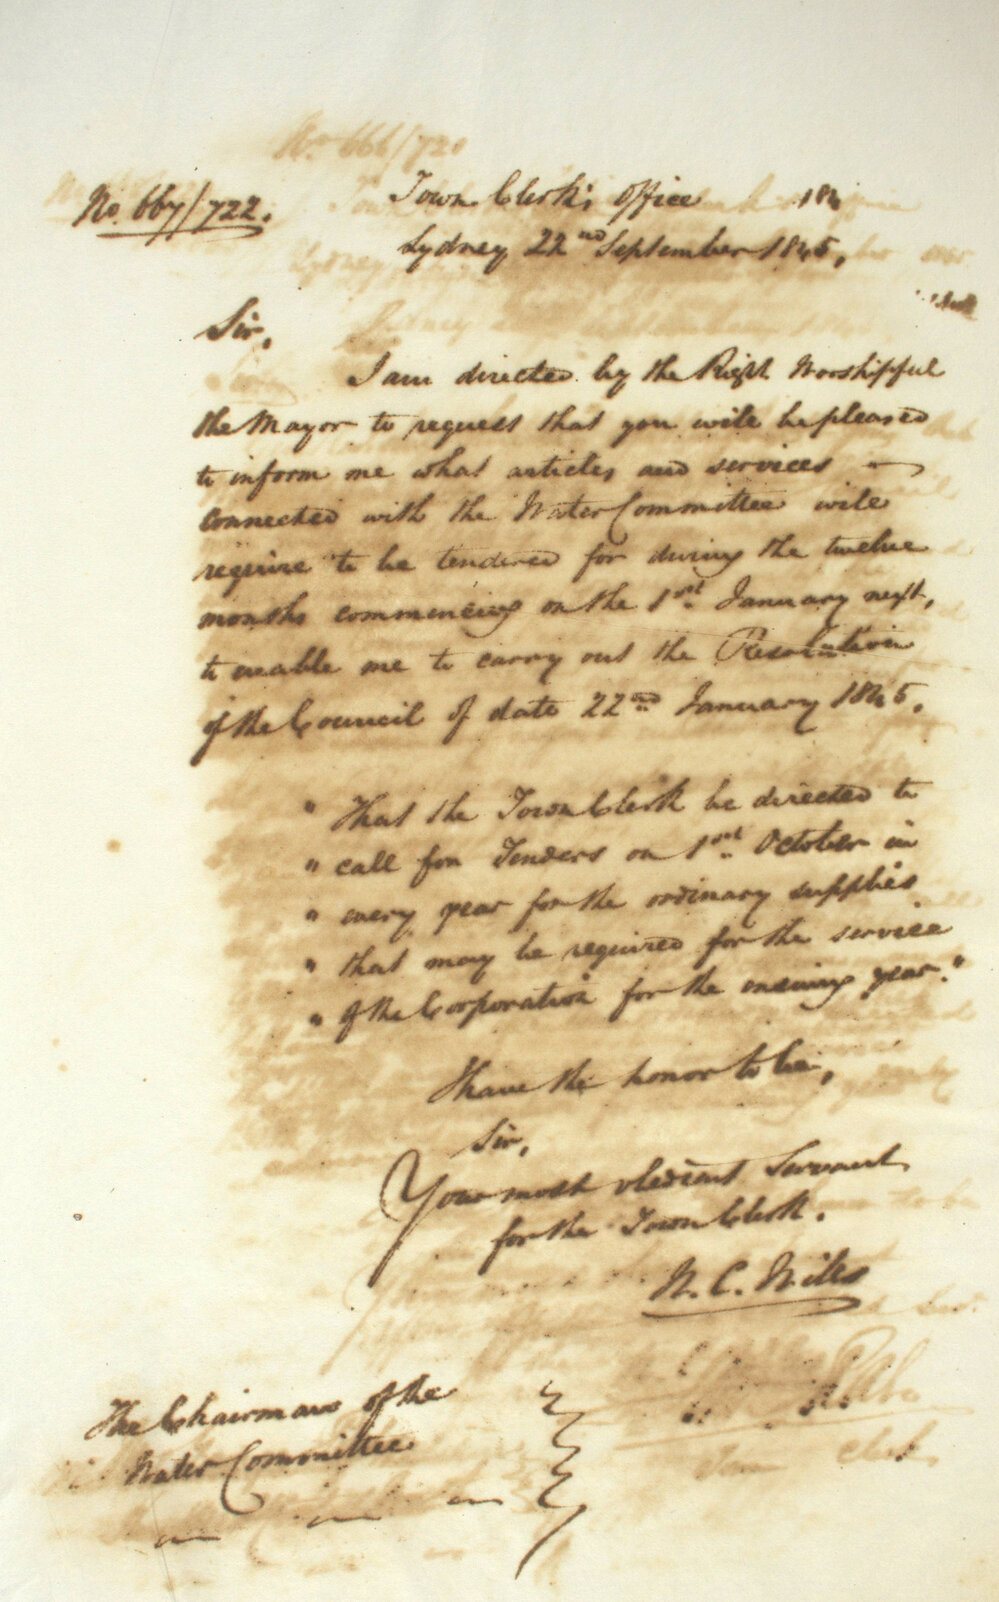 No. 667/722.
Town Clerk's Office 184
Sydney 22nd September 1845.
Sir,
I am directed by the Right Worshipful
the Mayor to request that you will be pleased
to inform me what articles and services
connected with the Water Committee will
require to be tendered for during the twelve
months commencing on the 1st January next,
to enable me to carry out the Resolution
of the Council of date 22nd January 1845.
" That the Town Clerk be directed to
" call for Tenders on 1st October in
" every year for the ordinary supplies
" that may be required for the service
" of the Corporation for the ensuing year."
I have the honor to be,
Sir,
Your most obedient Servant
for the Town Clerk.
W. C. Wills
The Chairman of the
Water Committee